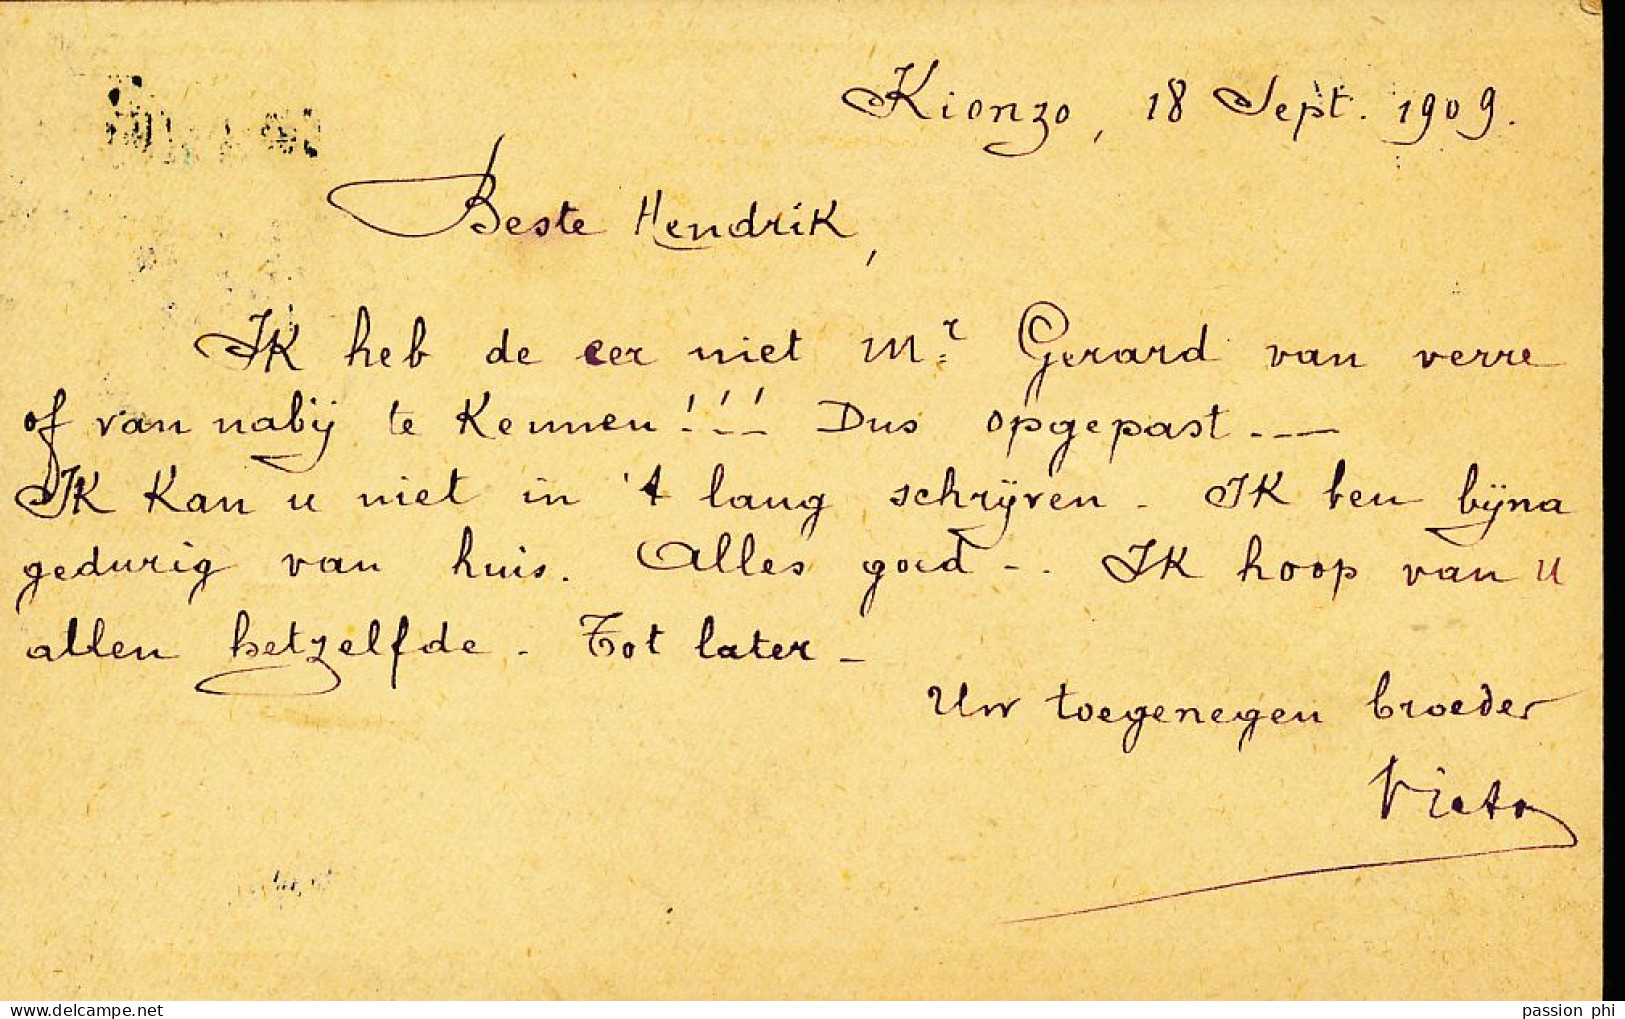 Kionzo, 18 Sept. 1909.
Beste Hendrik,
Ik heb de eer niet Mr Gerard van verre
of van nabij te kennen!!! Dus opgepast ---
Ik kan u niet in 't lang schrijven - Ik ben bijna
gedurig van huis. Alles goed -. Ik hoop van u
allen hetzelfde. Tot later -
Uw toegenegen broeder
Victor
delcampe.net
passion phi